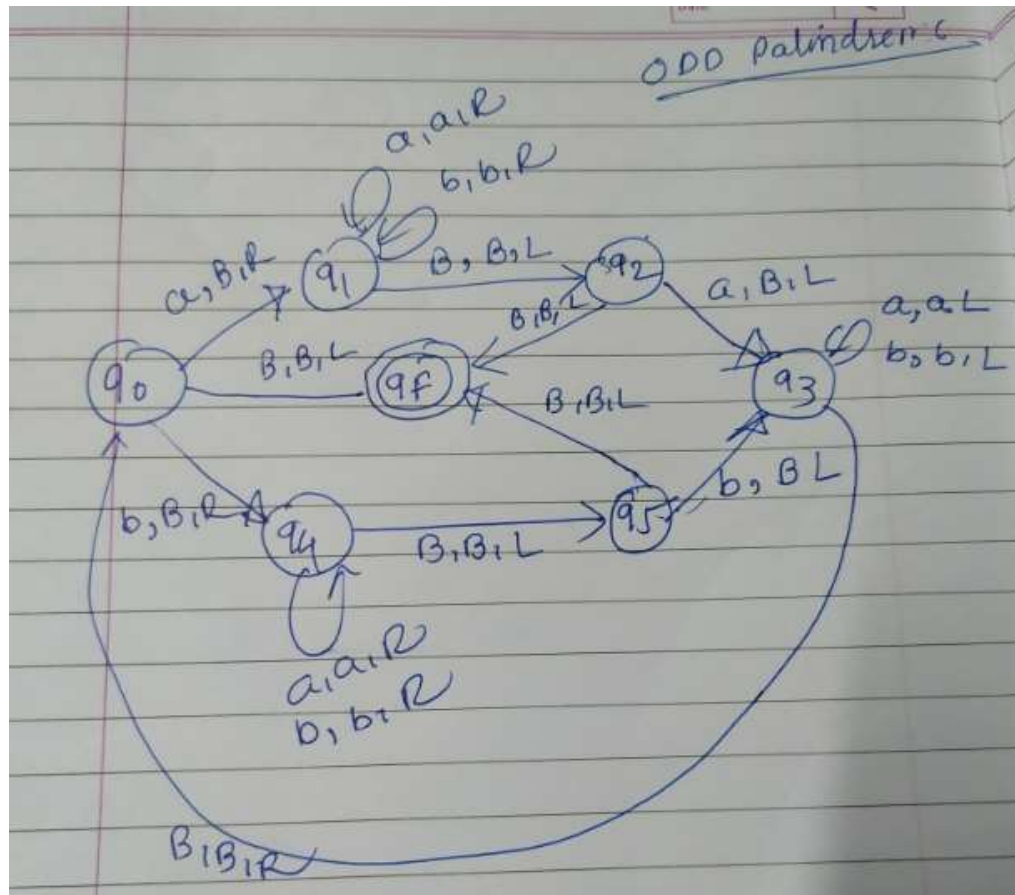 ODD Palindremc
a,a,R
b,b,R
a,B,R
q1
B,B,L
q2
a,B,L
a,a L
b,b,L
q0
B,B,L
qf
B,B,L
q3
B,B,L
b,B,R
q4
B,B,L
q5
b,B L
a,a,R
b,b,R
B,B,R